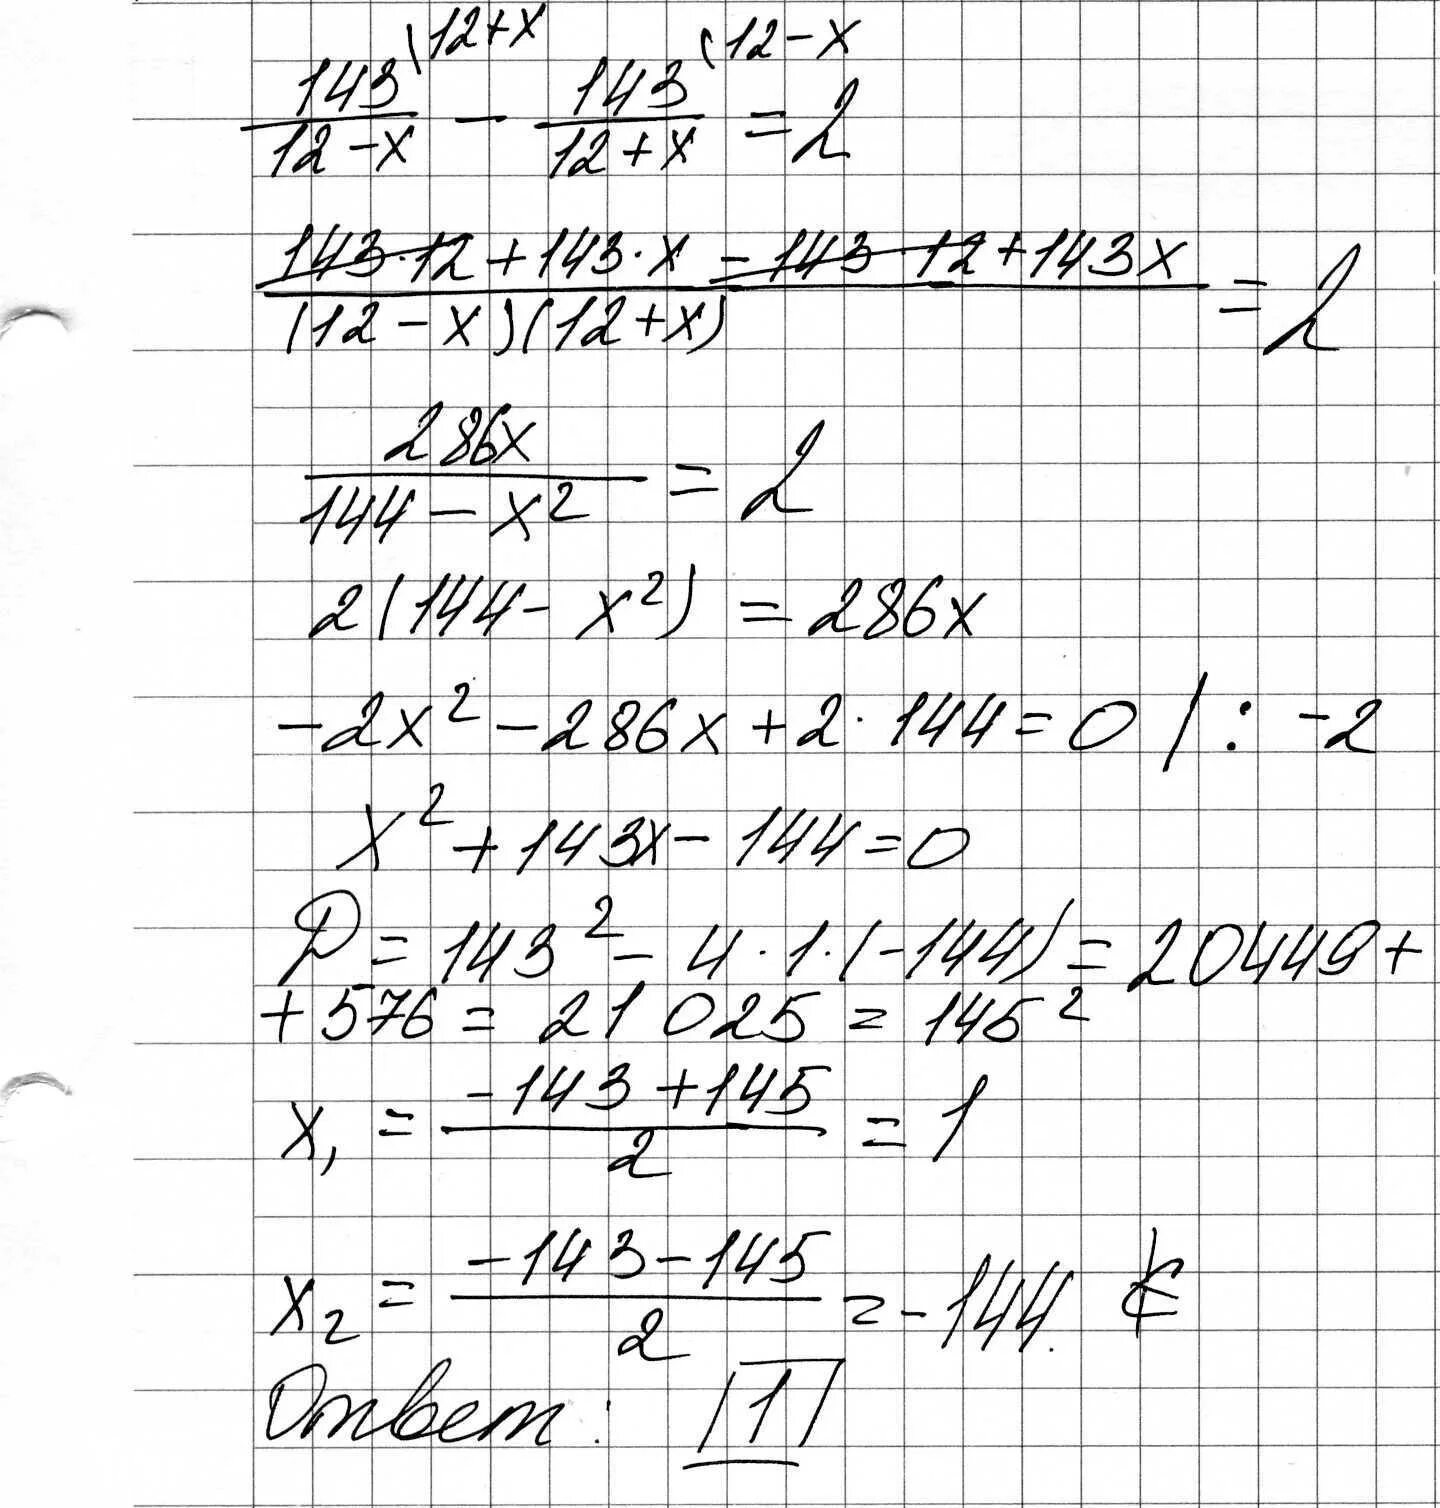 143/(12-x) \12+x - 143/(12+x) (12-x = 2
(143·12+143·x-143·12+143x)/((12-x)(12+x)) = 2
286x/(144-x²) = 2
2(144-x²) = 286x
-2x²-286x+2·144=0 / : -2
x²+143x-144=0
D=143²-4·1·(-144)=20449+
+576=21025=145²
x₁ = (-143+145)/2 = 1
x₂ = (-143-145)/2 = -144. ∉
Ответ: 1